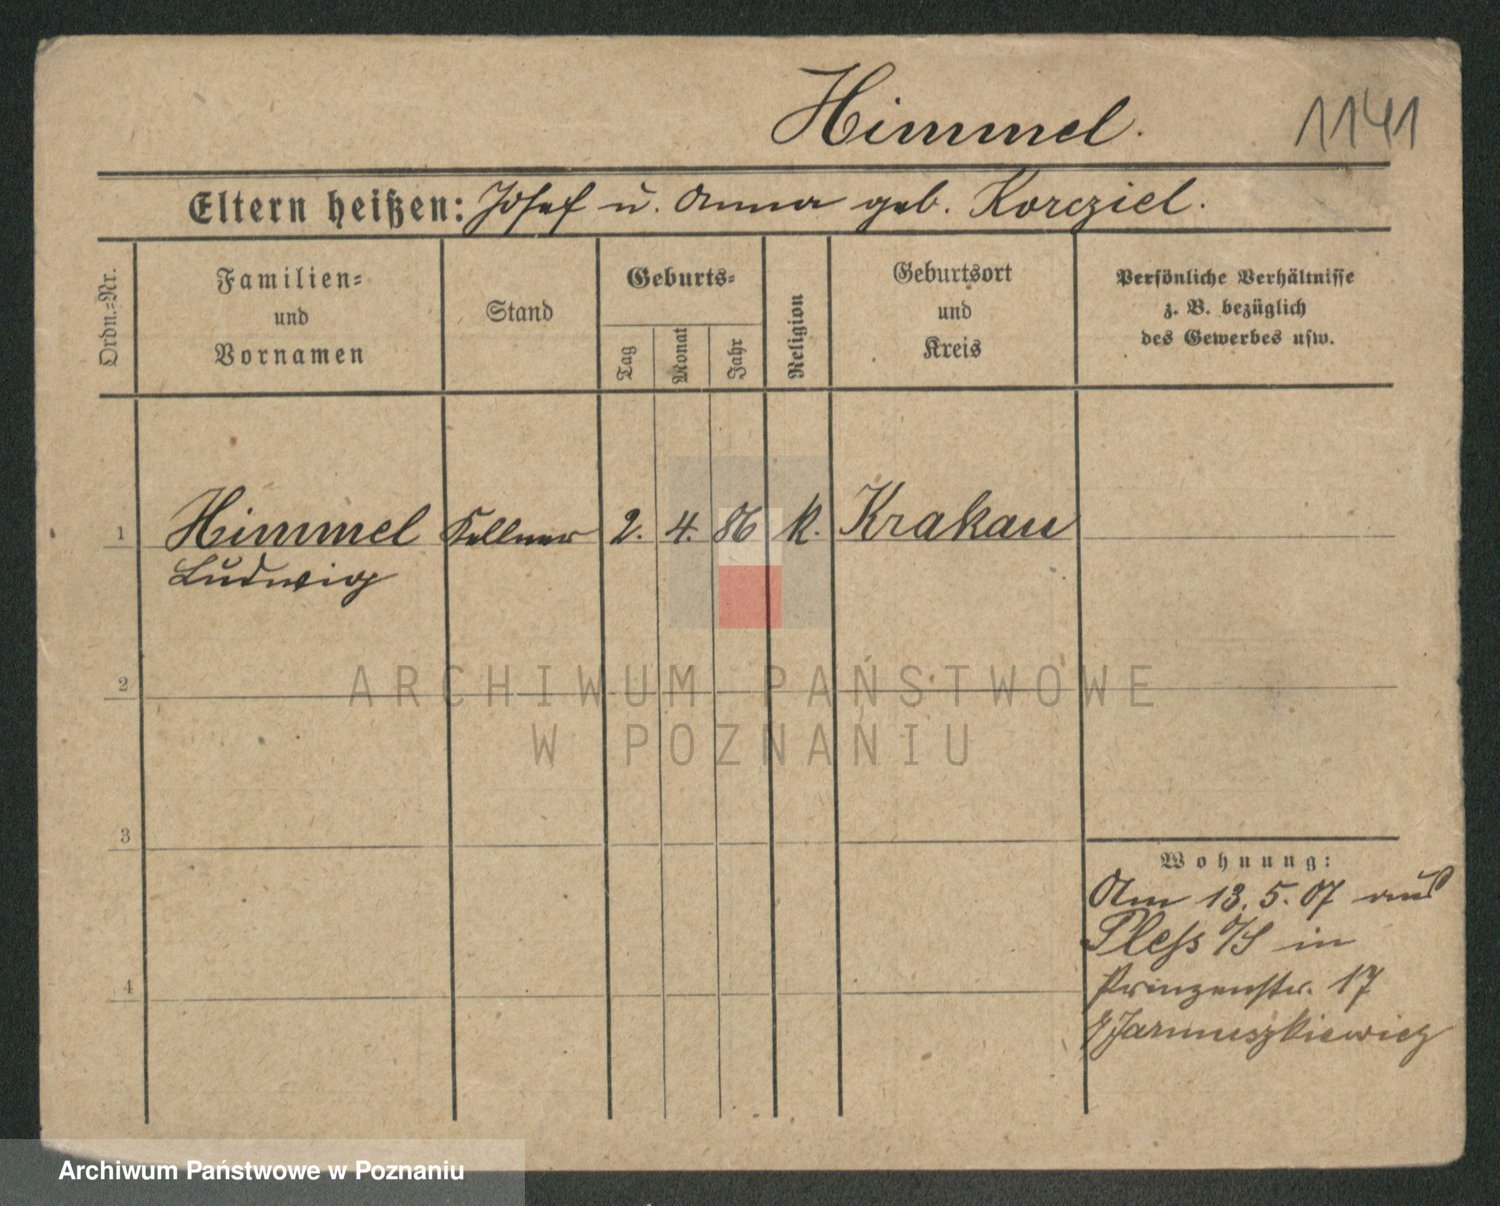 Himmel.
1141
Eltern heißen: Josef u. Anna geb. Korcziel.
Ordn.-Nr.
Familien-
und
Vornamen
Stand
Geburts-
Tag
Monat
Jahr
Religion
Geburtsort
und
Kreis
Persönliche Verhältnisse
z. B. bezüglich
des Gewerbes usw.
1 Himmel Kellner 2. 4. 86 k. Krakau
Ludwig
2
ARCHIWUM PAŃSTWOWE
W POZNANIU
3
Wohnung:
Am 13. 5. 07 aus
Pless O/S in
4 Prinzenstr. 17
Jarmuszkiewicz
Archiwum Państwowe w Poznaniu